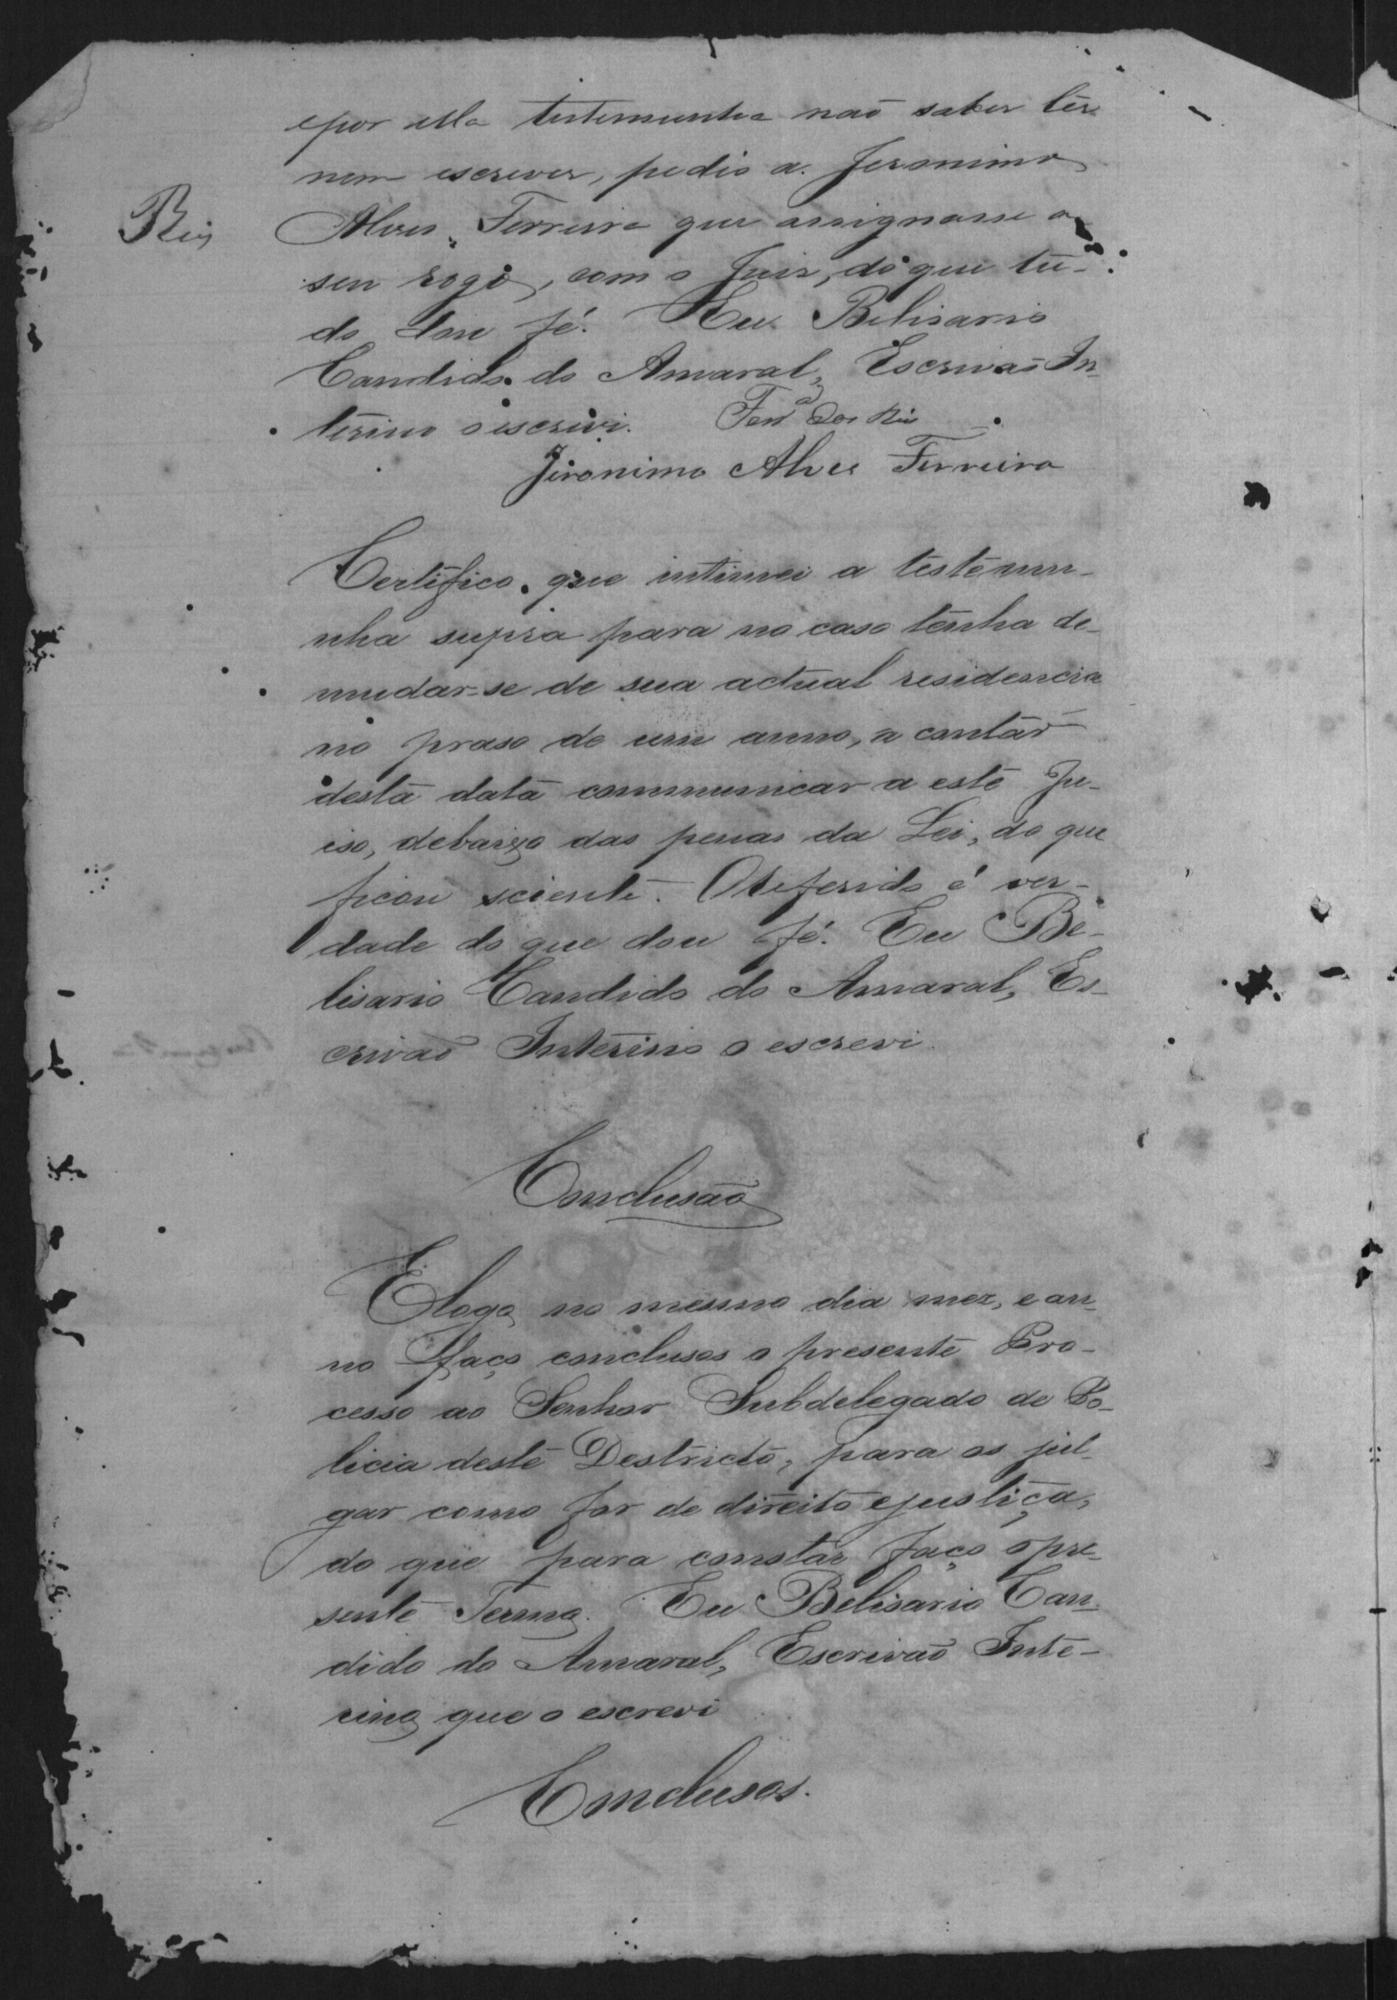 e por ella testemunha não saber ler
nem escrever, pedio a Jeronimo
Reis
Alves Ferreira que assignasse a
seu rogo, com o Juiz, do que tu-
do dou fé. Eu Belisario
Candido do Amaral, Escrivaõ In-
terino o escrivi. dos Reis
Jeronimo Alves Ferreira
Certifico que intimei a testemu-
nha supra para no caso tenha de
mudar-se de sua actual residencia
no praso de um anno, a contar
desta data communicar a este Ju-
iso, debaixo das penas da Lei, do que
ficou sciente. O referido é ver-
dade do que dou fé. Eu Be-
lisario Candido do Amaral, Es-
crivaõ Interino o escrevi.
Conclusaõ
E logo no mesmo dia mez, e an-
no faço conclusos o presente Pro-
cesso ao Senhor Subdelegado de Po-
licia deste Destricto, para os jul-
gar como for de direito e justiça,
do que para constar faço o pre-
sente Termo. Eu Belisario Can-
dido do Amaral, Escrivaõ Inte-
rino que o escrevi
Conclusos.